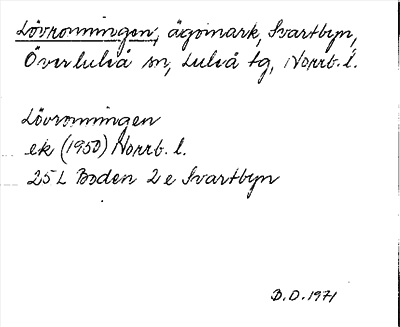 Lövronningen, ägomark, Svartbyn,
Överluleå sn, Luleå tg, Norrb. l.
Lövronningen
ek (1950) Norrb. l.
25 L Boden 2 e Svartbyn
B.D. 1971